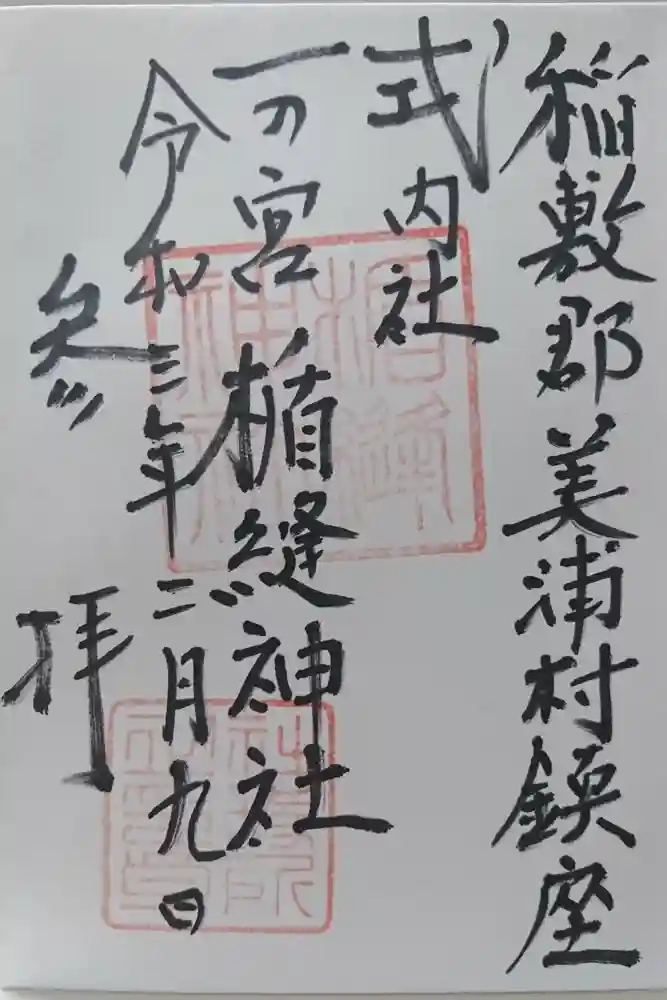 稲敷郡美浦村鎮座
式内社
一の宮 楯縫神社
令和三年二月九日
参拝
楯縫神社